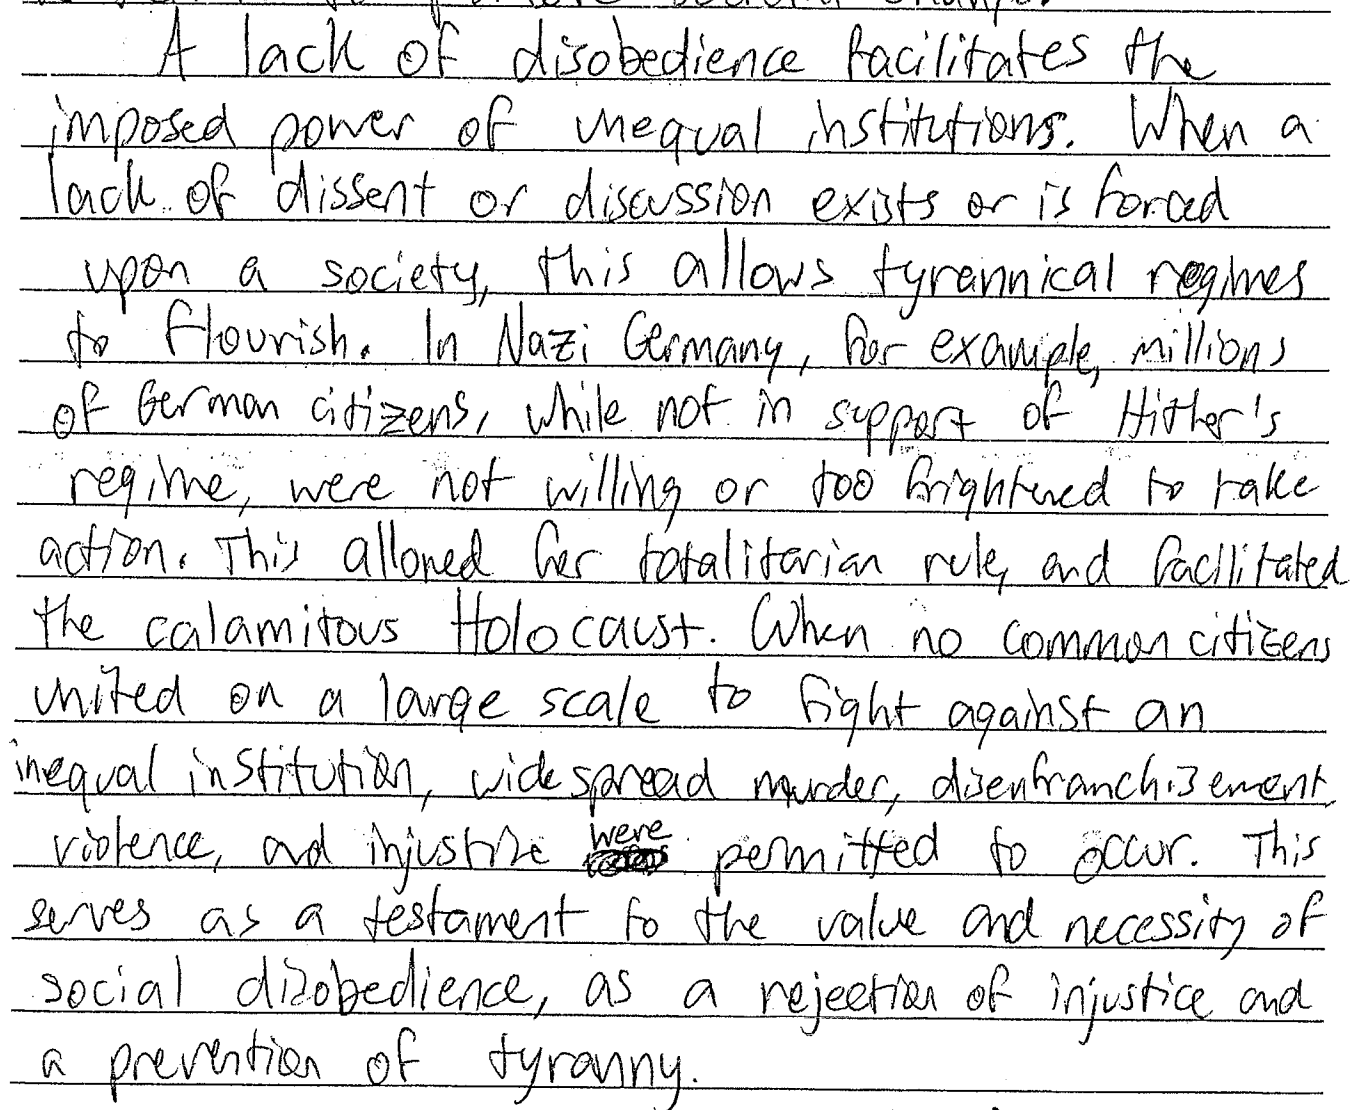 A lack of disobedience facilitates the
imposed power of unequal institutions. When a
lack of dissent or discussion exists or is forced
upon a society, this allows tyrannical regimes
to flourish. In Nazi Germany, for example, millions
of German citizens, while not in support of Hitler's
regime, were not willing or too frightened to take
action. This allowed for totalitarian rule, and facilitated
the calamitous Holocaust. When no common citizens
united on a large scale to fight against an
inequal institution, widespread murder, disenfranchisement,
violence, and injustice were permitted to occur. This
serves as a testament to the value and necessity of
social disobedience, as a rejection of injustice and
a prevention of tyranny.